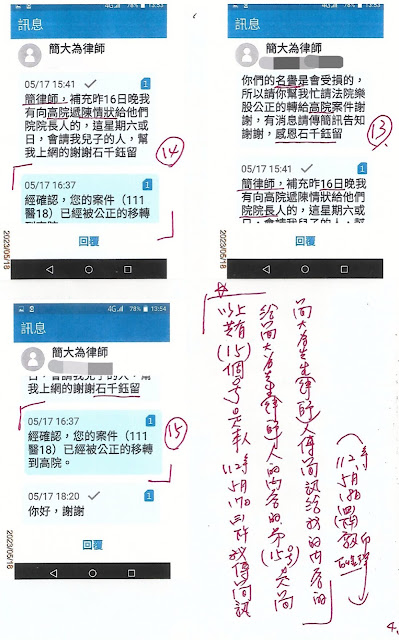 4G 78% 13:53
訊息
簡大為律師
05/17 15:41
簡律師，補充昨16日晚我
有向高院遞陳情狀給他們
院院長人的，這星期六或
日，會請我兒子的人，幫
我上網的謝謝石千鈺留
14
05/17 16:37
經確認，您的案件（111
醫18）已經被公正的移轉
到高院。
回覆
2023/05/18
78% 13:53
訊息
簡大為律師
你們的名譽是會受損的，
所以請你幫我忙請法院樂
股公正的轉給高院案件謝
謝，有消息請傳簡訊告知
謝謝，感恩石千鈺留
13
05/17 15:41
簡律師，補充昨16日晚我
有向高院遞陳情狀給他們
院院長人的，這星期六或
日，會請我兒子的人，幫
回覆
2023/05/18
4G 78% 13:54
訊息
簡大為律師
日，會請我兒子的人，幫
我上網的謝謝石千鈺留
05/17 16:37
經確認，您的案件（111
醫18）已經被公正的移轉
到高院。
15
05/17 18:20
你好，謝謝
回覆
2023/05/18
112年5月18日
簡大為先生律師人傳簡訊給我的內容的
給簡大為律師人的內容的，第(15)号是簡
以上共有(15)個号是本人112年5月17日三件我傳簡訊
4.